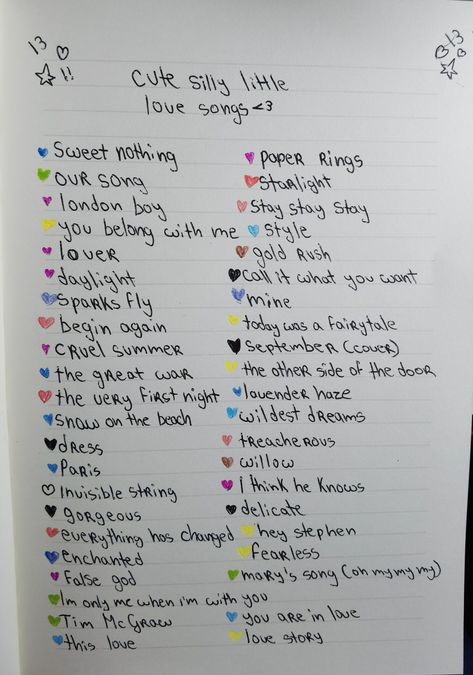 13
!!
13
cute silly little
love songs <3
sweet nothing
our song
london boy
you belong with me
lover
daylight
sparks fly
begin again
cruel summer
the great war
the very first night
snow on the beach
dress
Paris
Invisible string
gorgeous
everything has changed
enchanted
false god
Im only me when i'm with you
Tim McGraw
this love
paper rings
starlight
stay stay stay
style
gold rush
call it what you want
mine
today was a fairytale
september (cover)
the other side of the door
lavender haze
wildest dreams
treacherous
willow
i think he knows
delicate
hey stephen
fearless
mary's song (oh my my my)
you are in love
love story